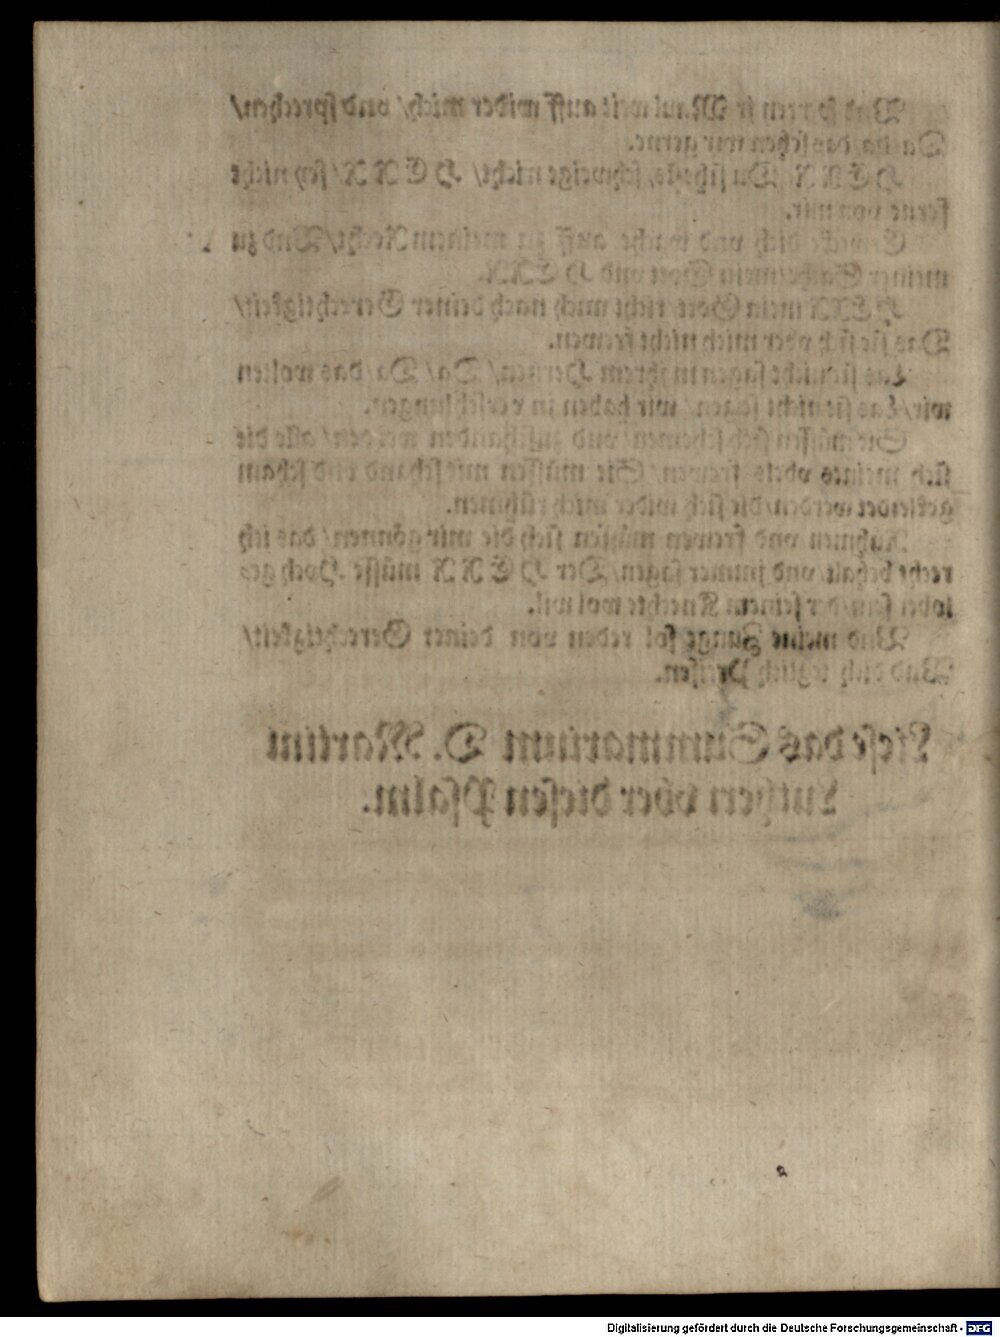 Vnd sperren jr Maul weit auff wider mich / vnd sprechen /
Da / da / das sehen wir gerne.
HERR Du sihests, schweige nicht / HERR / sey nicht
ferne von mir.
Erwecke dich vnd wache auff zu meinem Recht / Vnd zu
meiner Sache / mein Gott vnd HERR.
HERR mein Gott richt mich nach deiner Gerechtigkeit /
Das sie sich vber mich nicht frewen.
Las sie nicht sagen in jhrem Hertzen / Da / Da / das wolten
wir / Las sie nicht sagen / wir haben jn verschlungen.
Sie müssen sich schemen / vnd zuschanden werden / alle die
sich meines vbels frewen / Sie müssen mit schand vnd scham
gekleidet werden / die sich wider mich rhümen.
Rühmen vnd frewen müssen sich die mir gönnen / das ich
recht behalt / vnd jmmer sagen / Der HERR müsse Hoch ge-
lobet sein / der seinem Knechte wol wil.
Vnd meine Zunge sol reden von deiner Gerechtigkeit /
Vnd dich teglich Preisen.
Liese das Summarium D. Martini
Lutheri vber diesen Psalm.
Digitalisierung gefördert durch die Deutsche Forschungsgemeinschaft - DFG